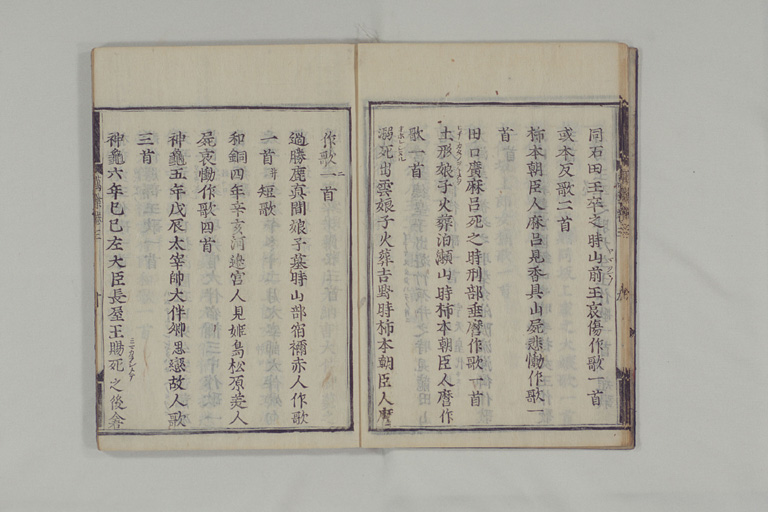 同石田王卒之時山前王哀傷作歌一首
或本反歌二首
柿本朝臣人麻呂見香具山屍悲慟作歌一
首
田口廣麻呂死之時刑部垂麿作歌一首
土形娘子火葬泊瀬山時柿本朝臣人麿作
歌一首
溺死出雲娘子火葬吉野時柿本朝臣人麿
作歌二首
過勝鹿真間娘子墓時山部宿禰赤人作歌
一首并短歌
和銅四年辛亥河邊宮人見姫島松原美人
屍哀慟作歌四首
神龜五年戊辰太宰帥大伴卿思戀故人歌
三首
神龜六年己巳左大臣長屋王賜死之後倉